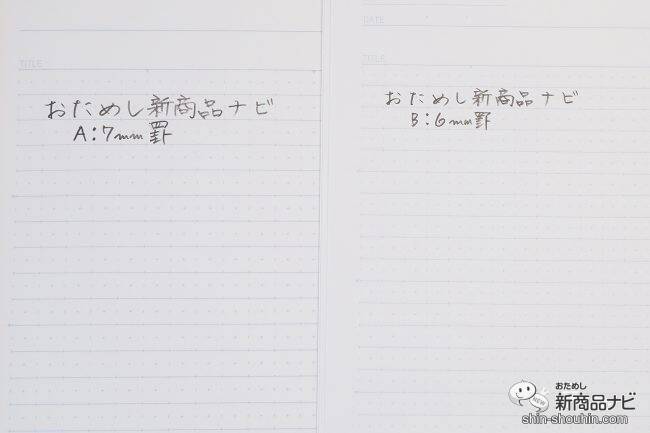 TITLE
おためし新商品ナビ
A:7mm罫
DATE
TITLE
おためし新商品ナビ
B:6mm罫
NEW
おためし
新商品ナビ
shin-shouhin.com